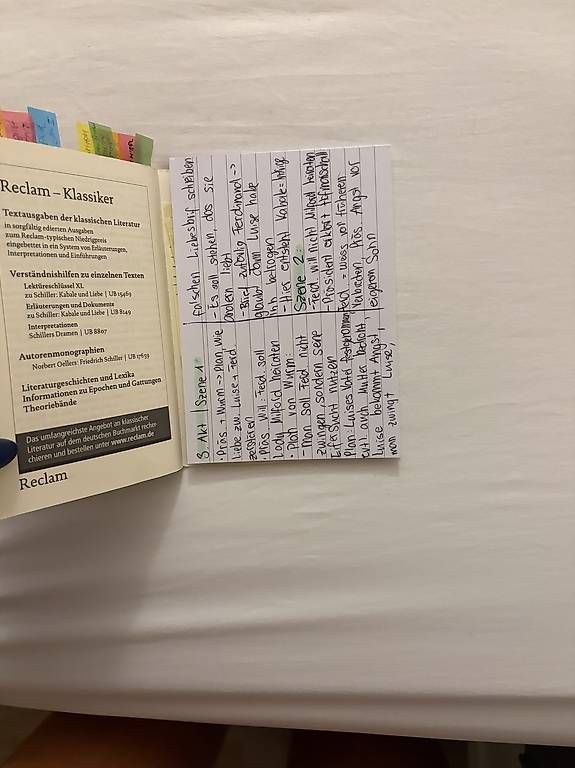 Reclam – Klassiker
Textausgaben der klassischen Literatur
in sorgfältig edierten Ausgaben
zum Reclam-typischen Niedrigpreis
eingebettet in ein System von Erläuterungen,
Interpretationen und Einführungen
Verständnishilfen zu einzelnen Texten
Lektüreschlüssel XL
zu Schiller: Kabale und Liebe | UB 15469
Erläuterungen und Dokumente
zu Schiller: Kabale und Liebe | UB 8149
Interpretationen
Schillers Dramen | UB 8807
Autorenmonographien
Norbert Oellers: Friedrich Schiller | UB 17639
Literaturgeschichten und Lexika
Informationen zu Epochen und Gattungen
Theoriebände
Das umfangreichste Angebot an klassischer
Literatur auf dem deutschen Buchmarkt recher-
chieren und bestellen unter www.reclam.de
Reclam
3. Akt | Szene 1:
· Präs. + Wurm -> Plan, wie
Liebe zw. Luise + Ferd.
zerstören
· Präs. will: Ferd. soll
Lady Milford heiraten
· Plan von Wurm:
- man soll Ferd. nicht
zwingen, sondern seine
Eifersucht nutzen
Plan: Luises Vater festgenommen,
evtl auch Mutter bedroht,
Luise bekommt Angst,
man zwingt Luise,
falschen Liebesbrief schreiben
- Es soll stehen, das sie
anderen liebt
- Brief zufällig Ferdinand ->
glaubt dann Luise habe
ihn betrogen
- Hier entsteht Kabale = Intrige
Szene 2:
- Ferd. will nicht Milford heiraten
- Präsident erklärt Hofmarschall
= weiss von früheren
Verbrechen, Präs. Angst vor
eigenem Sohn